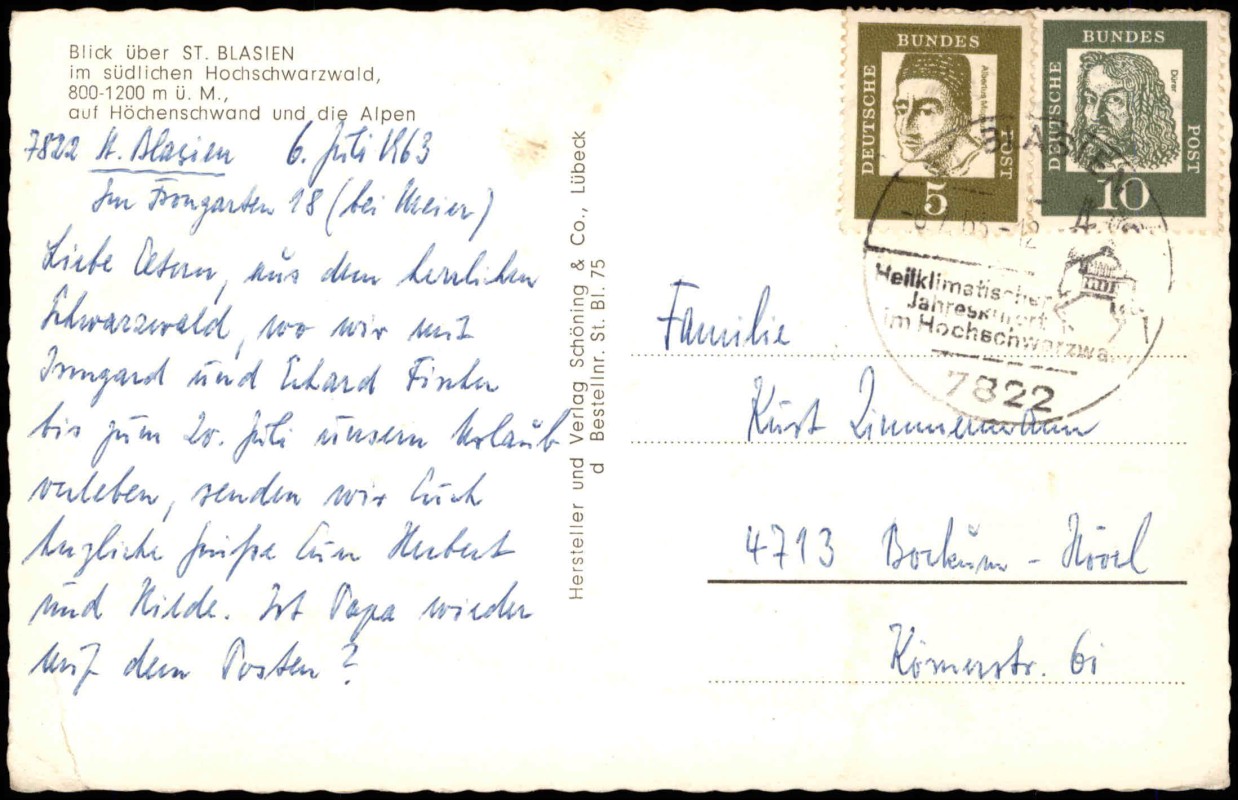 Blick über ST. BLASIEN
im südlichen Hochschwarzwald,
800-1200 m ü. M.,
auf Höchenschwand und die Alpen
7822 St. Blasien 6. Juli 1963
Im Irmgarten 18 (bei Meier)
Liebe Eltern, aus dem herrlichen
Schwarzwald, wo wir mit
Irmgard und Erhard Fischer
bis zum 20. Juli unsern Urlaub
verleben, senden wir Euch
herzliche Grüße Euer Herbert
und Hilde. Ist Papa wieder
auf dem Posten?
Hersteller und Verlag Schöning & Co., Lübeck
d Bestellnr. St. Bl. 75
DEUTSCHE BUNDES POST
Albertus
5
DEUTSCHE BUNDES POST
Dürer
10
BLASIEN
Heilklimatischer
Jahreskurort
im Hochschwarzwald
7822
Familie
Kurt Zimmermann
4713 Bockum-Hövel
Körnerstr. 6